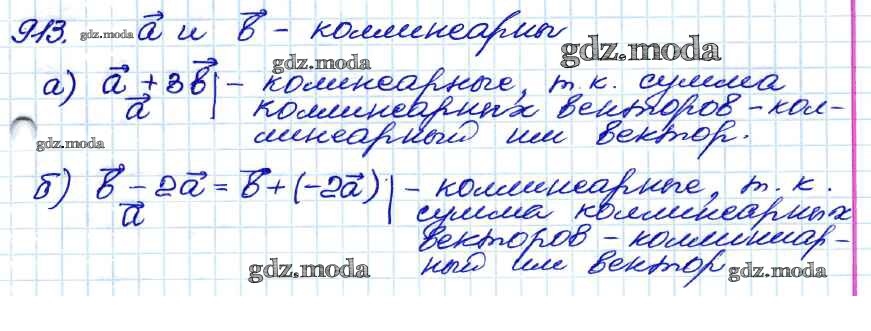 913. gdz.moda a⃗ и b⃗ - коллинеарны
gdz.moda
gdz.moda
а) a⃗ + 3b⃗ | - колинеарные, т.к. сумма
a⃗ | коллинеарных векторов - кол-
gdz.moda
линеарный им вектор.
б) b⃗ - 2a⃗ = b⃗ + (-2a⃗) | - коллинеарные, т.к.
a⃗ | сумма коллинеарных
векторов - коллиниар-
gdz.moda
ный им вектор gdz.moda